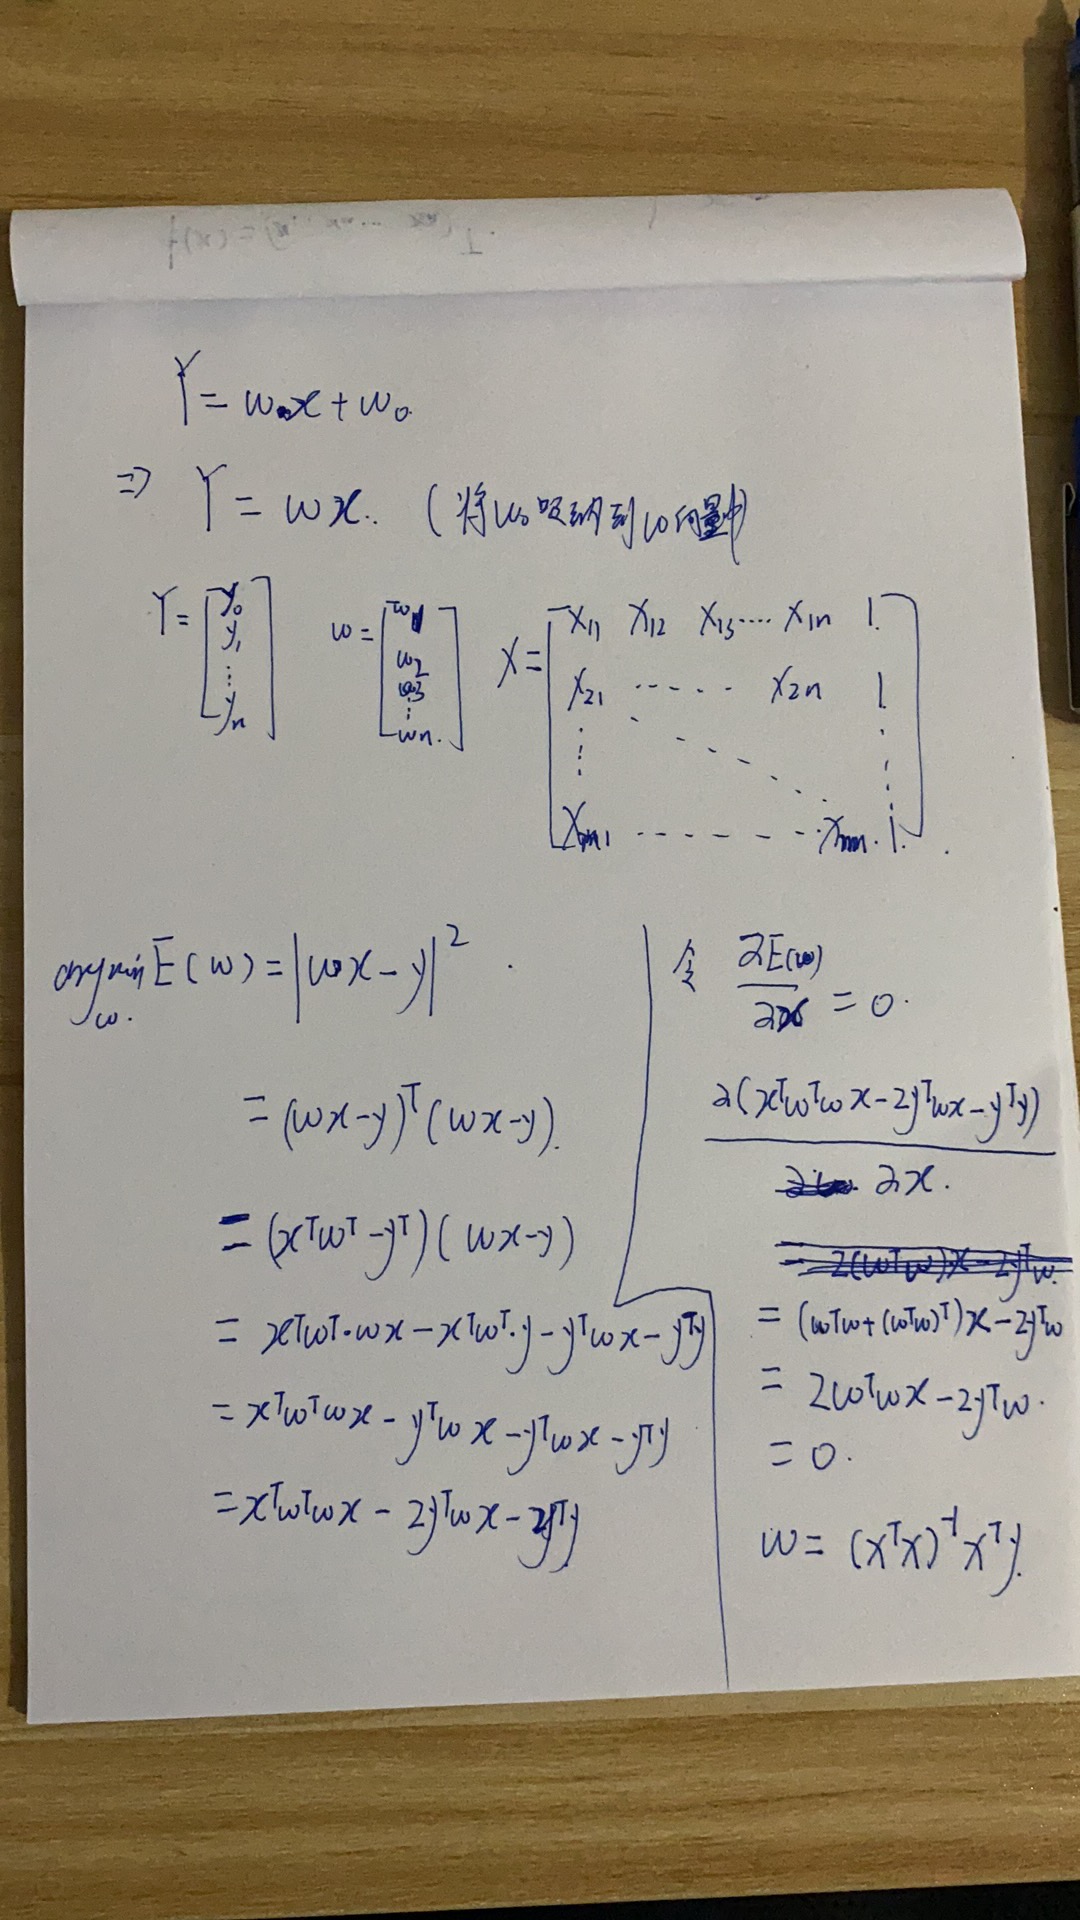 Y = wx + w₀
⇒ Y = wx. (将w₀吸纳到w向量中)
Y = [y₀ y₁ ⋮ yₙ] w = [w₁ w₂ w₃ ⋮ wₙ] X = [x₁₁ x₁₂ x₁₃ ···· x₁ₙ 1
x₂₁ ······ x₂ₙ 1
⋮ ⋱ ⋮
xₘ₁ ······ xₘₙ 1]
argmin_w. E(w) = |wx - y|²
= (wx-y)ᵀ(wx-y).
= (xᵀwᵀ-yᵀ)(wx-y)
= xᵀwᵀ·wx - xᵀwᵀ·y - yᵀwx - yᵀy
= xᵀwᵀwx - yᵀwx - yᵀwx - yᵀy
= xᵀwᵀwx - 2yᵀwx - yᵀy
令 ∂E(w)/∂x = 0.
∂(xᵀwᵀwx - 2yᵀwx - yᵀy)
∂x.
= (wᵀw+(wᵀw)ᵀ)x - 2yᵀw
= 2wᵀwx - 2yᵀw.
= 0.
w = (xᵀx)⁻¹xᵀy.